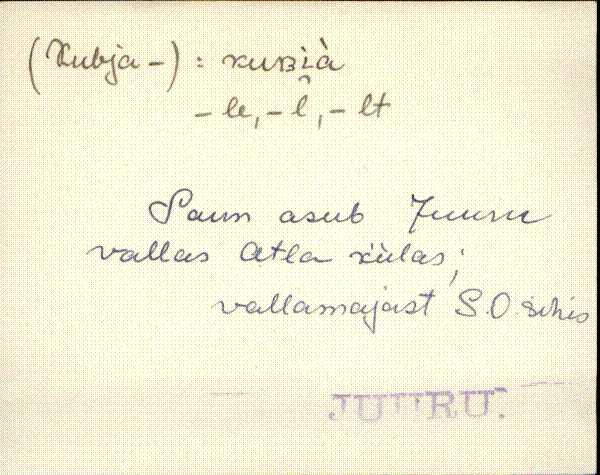 (Kubja-) : kuʙi̯à
-le, -l, -lt
Saun asub Juuru
vallas Atla külas;
vallamajast S.O. sihis
JUURU.